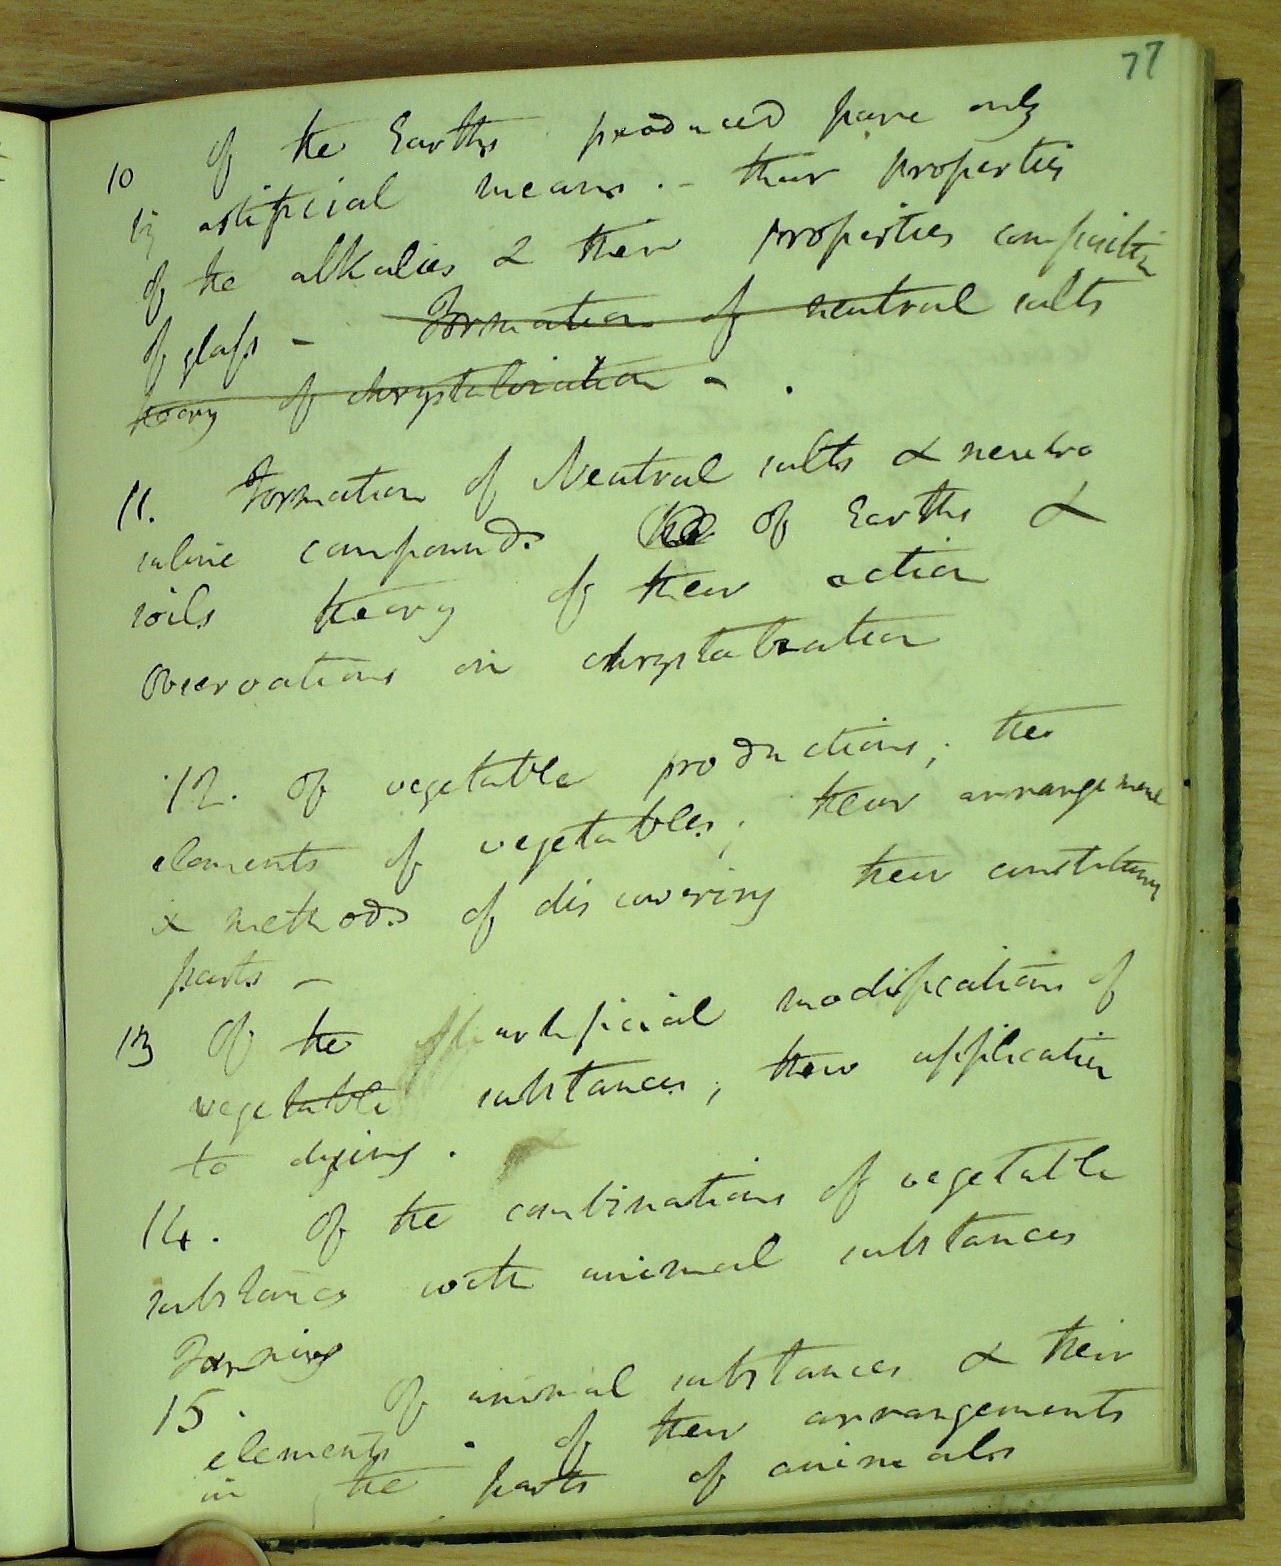 77
10 Of the Earths produced pure only
by artificial means. - their properties
of the alkalies & their properties composition
of glass - Formation of neutral salts
theory of chrystalization - .
11. Formation of Neutral salts & neutro
saline compounds of Earths &
soils theory of their action
Observations on chrystalization
12. Of vegetable productions; the
elements of vegetables; their arrangement
& methods of discovering their constituent
parts -
13 Of the artificial modifications of
vegetable substances; their application
to dying.
14. Of the combinations of vegetable
substances with animal substances
Tanning
15. Of animal substances & their
elements. of their arrangements
in the parts of animals